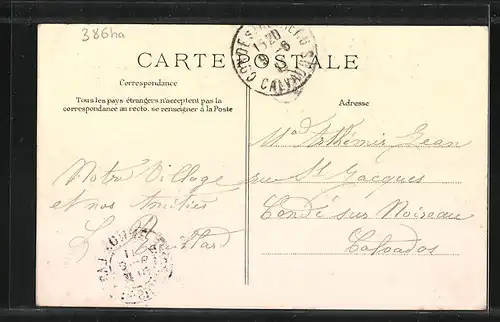 386ha
CARTE POSTALE
Correspondance
Tous les pays étrangers n'acceptent pas la
correspondance au recto. se renseigner à la Poste
Notre Village
et nos amitiés
Adresse
Jean
rue St Jacques
Condé sur Noireau
Calvados
15 20
CALVADOS